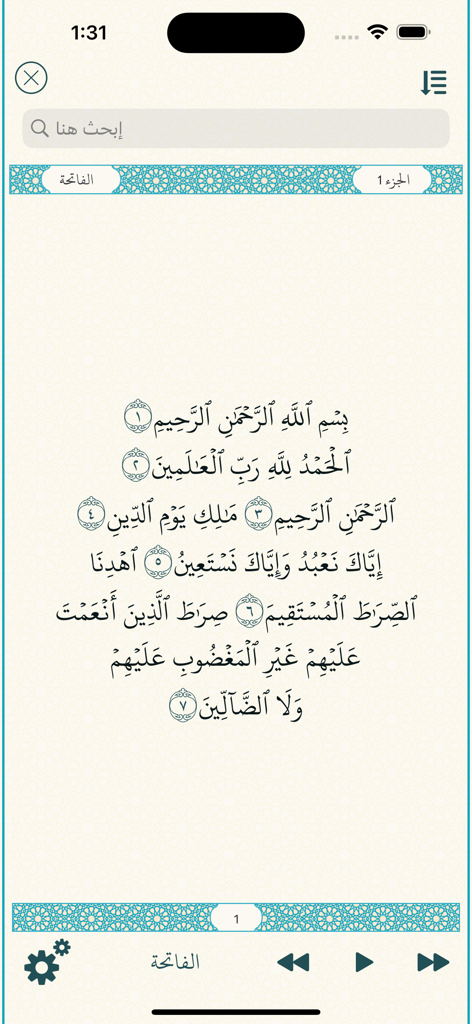 1:31
إبحث هنا
الجزء 1
الفاتحة
بِسۡمِ ٱللَّهِ ٱلرَّحۡمَٰنِ ٱلرَّحِيمِ ١
ٱلۡحَمۡدُ لِلَّهِ رَبِّ ٱلۡعَٰلَمِينَ ٢
ٱلرَّحۡمَٰنِ ٱلرَّحِيمِ ٣ مَٰلِكِ يَوۡمِ ٱلدِّينِ ٤
إِيَّاكَ نَعۡبُدُ وَإِيَّاكَ نَسۡتَعِينُ ٥ ٱهۡدِنَا
ٱلصِّرَٰطَ ٱلۡمُسۡتَقِيمَ ٦ صِرَٰطَ ٱلَّذِينَ أَنۡعَمۡتَ
عَلَيۡهِمۡ غَيۡرِ ٱلۡمَغۡضُوبِ عَلَيۡهِمۡ
وَلَا ٱلضَّآلِّينَ ٧
1
الفاتحة